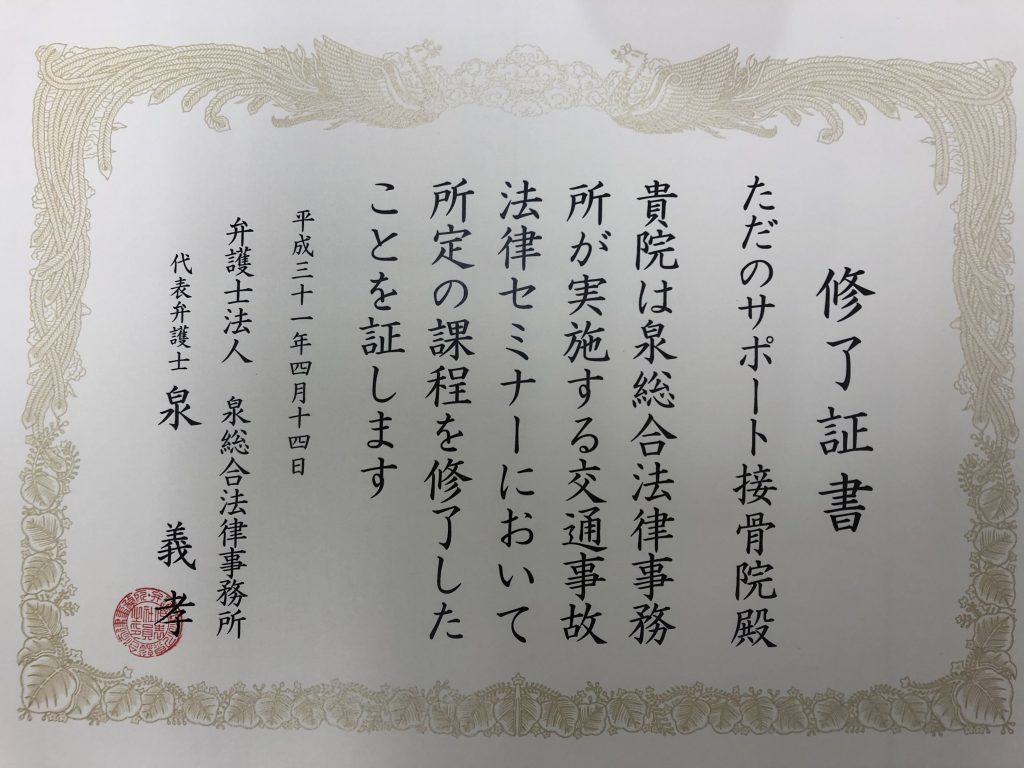 修了証書
ただのサポート接骨院殿
貴院は泉総合法律事務
所が実施する交通事故
法律セミナーにおいて
所定の課程を修了した
ことを証します
平成三十一年四月十四日
弁護士法人 泉総合法律事務所
代表弁護士 泉 義孝